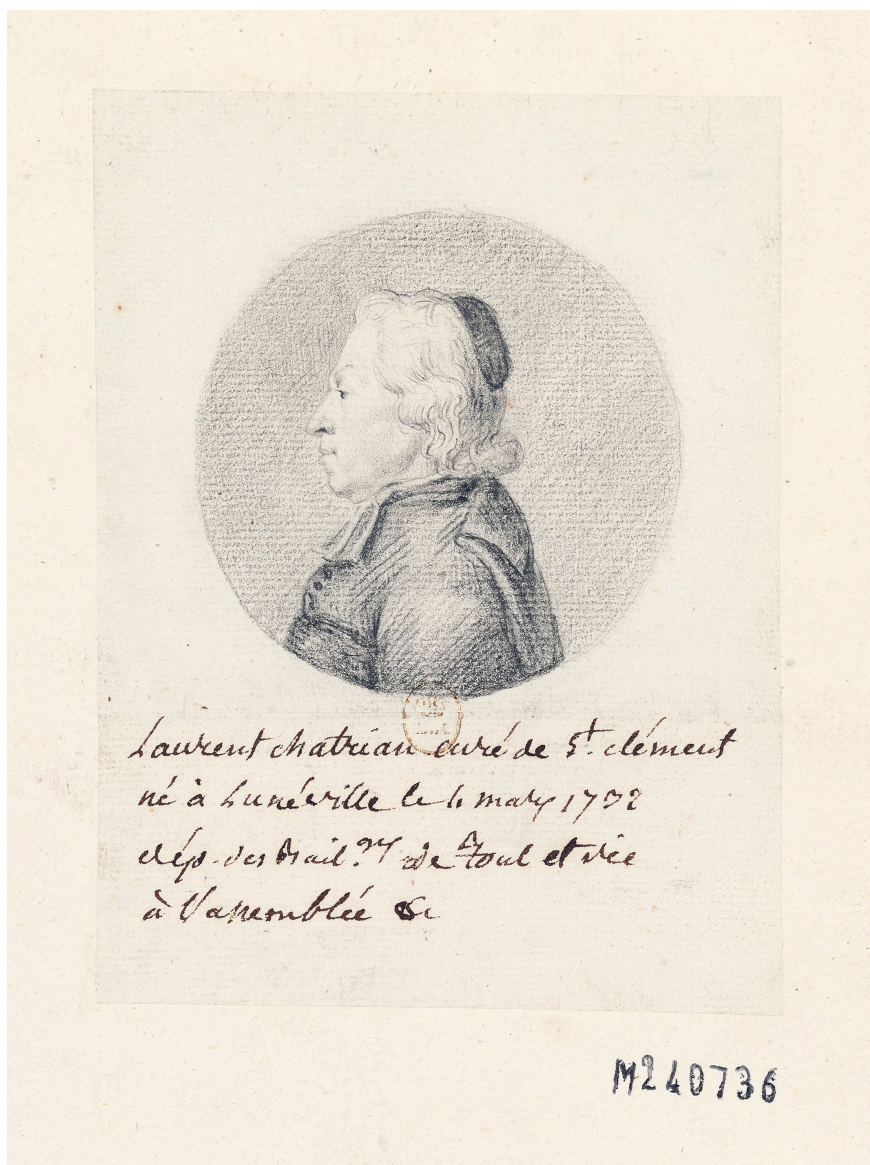 Laurent chatrian curé de St. clément
né à Lunéville le 4 mars 1732
dép. des Bail.ges de Toul et vic
à l'assemblée &c
M240736